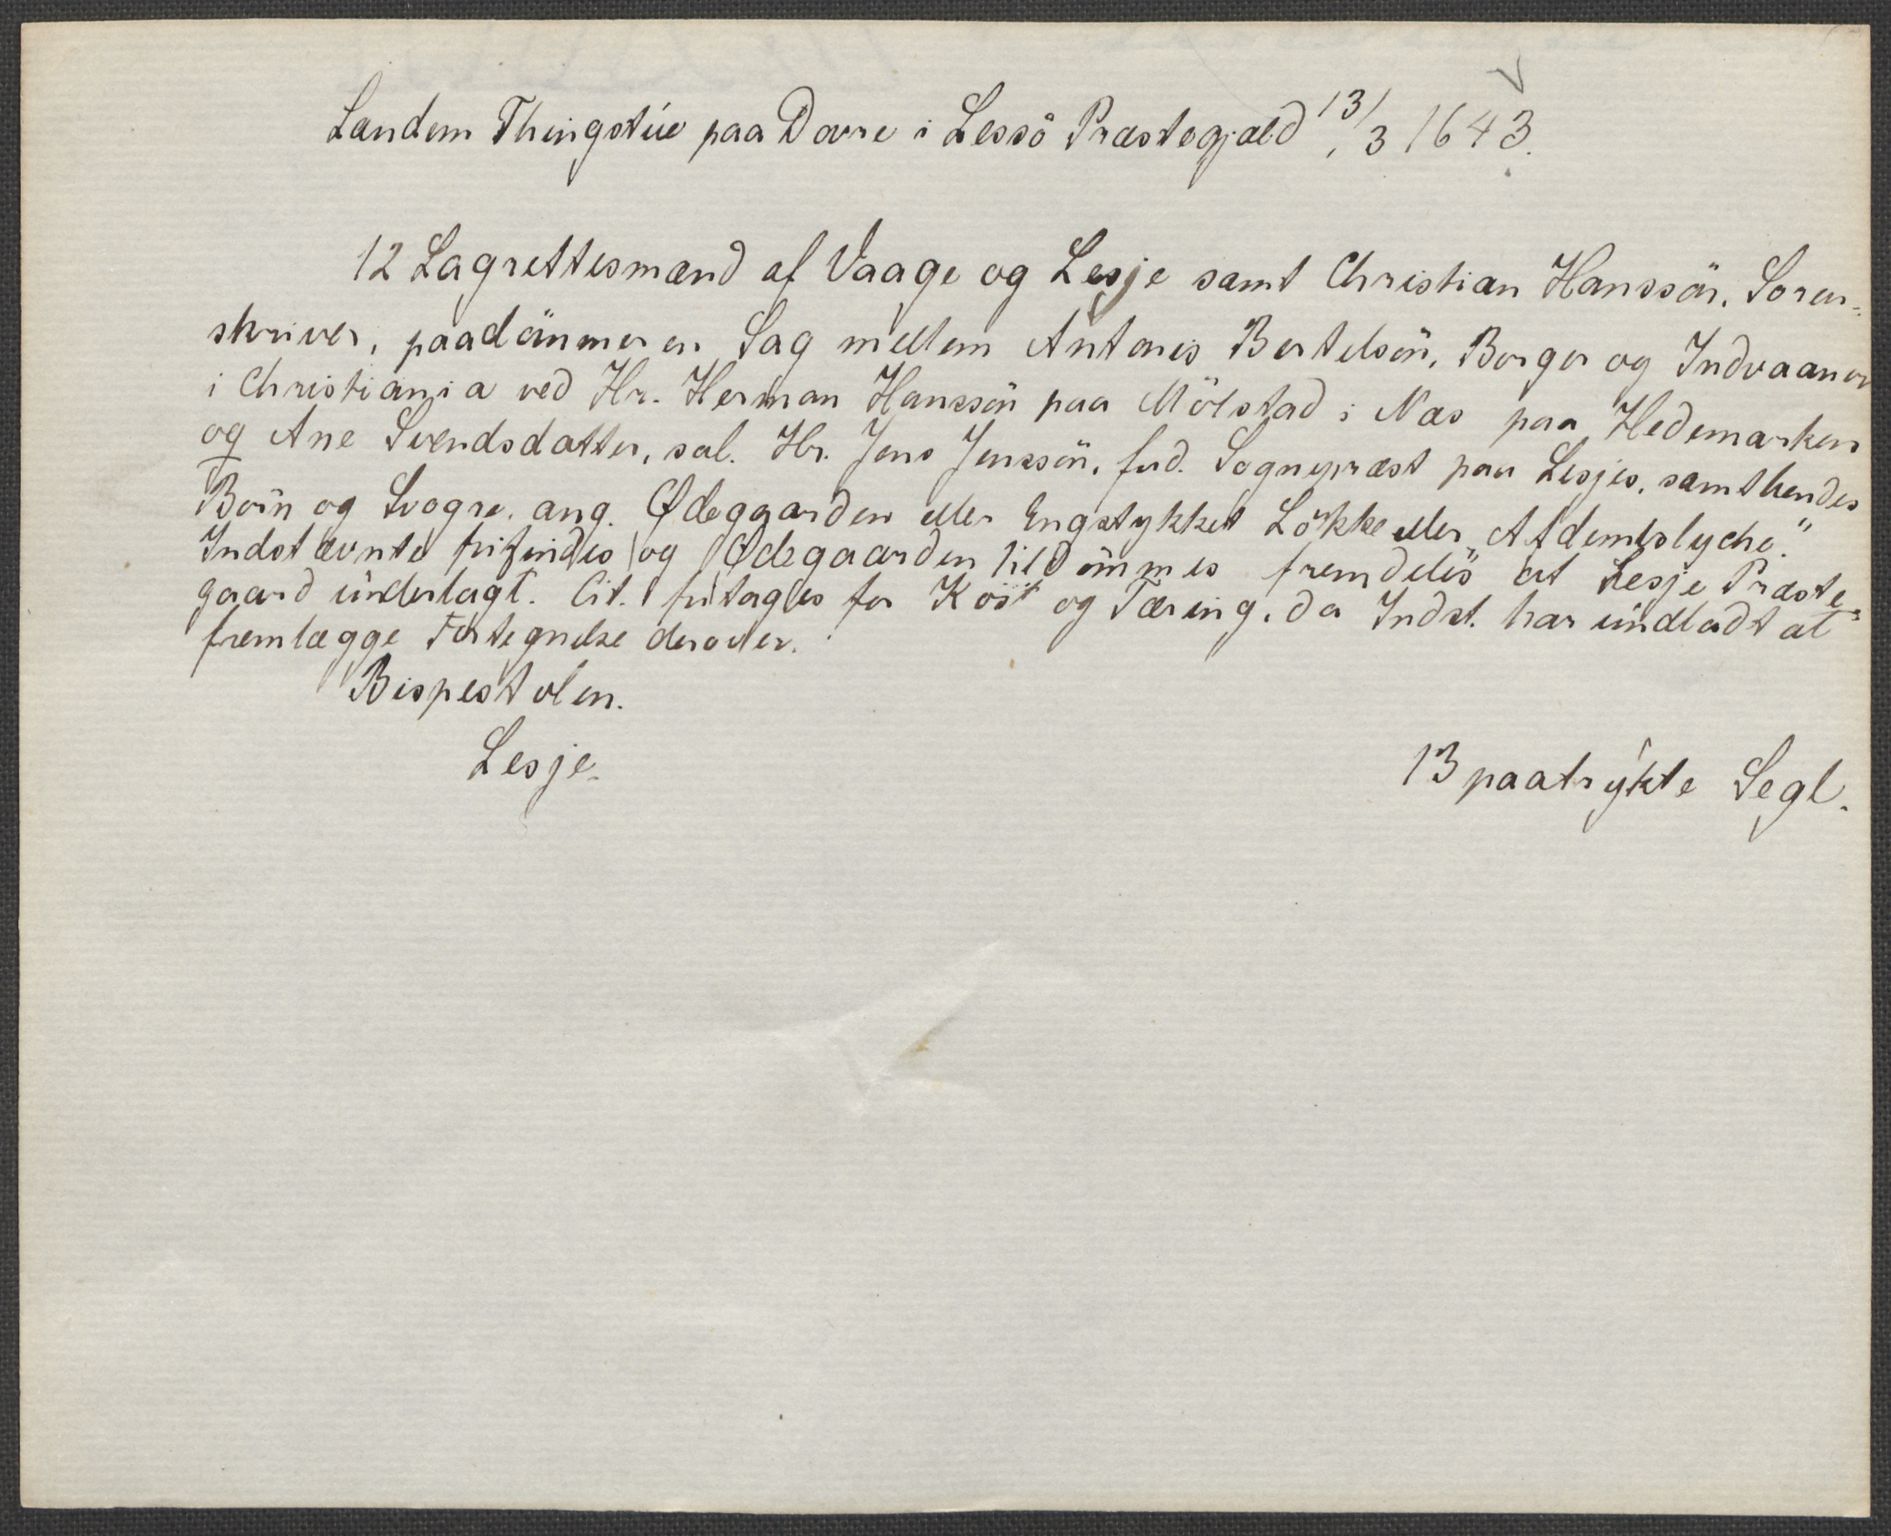 Landem Thingstue paa Dovre i Lessö Præstegjæld 13/3 1643.
12 Lagrettesmænd af Vaage og Lesje samt Christian Hanssön, Soren-
skriver, paadömmer en Sag mellem Antonis Bertelsön, Borger og Indvaaner
i Christiania ved Hr. Herman Hanssön paa Mölstad i Næs paa Hedemarken
og Ane Svendsdatter, sal. Hr. Jens Jenssön, fud. Sognepræst paa Lesjes, samt hendes
Börn og Svogre, ang. Ødegaarden eller Engstykket Lökke eller
Indstævnte frifindes og Ødegaarden tildömmes fremdeles at Lesje Præste-
gaard underlagt. Cit. fritages for Kost og Tæring, da Indst. har undladt at
fremlægge Fortegnelse derover.
Bispestolen.
Lesje.
13 paatrykte Segl.